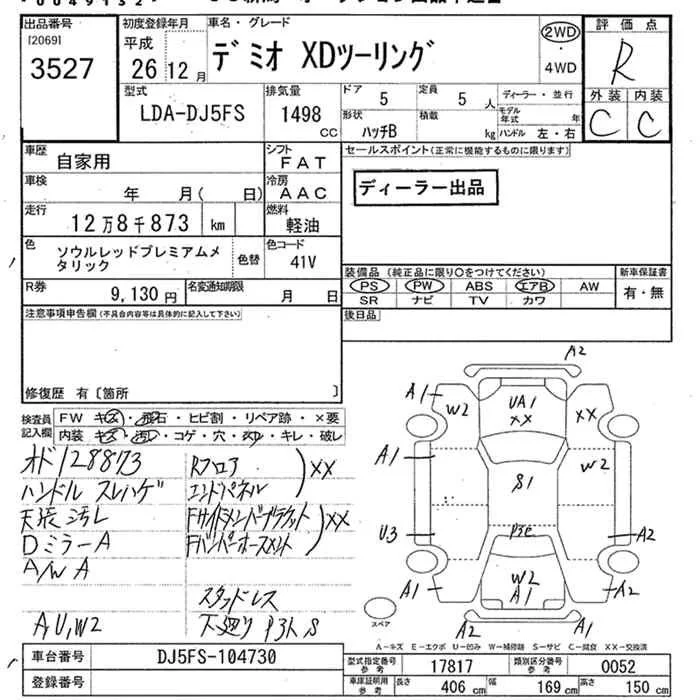 出品番号
[2069]
3527
初度登録年月
平成
26年12月
車名・グレード
デミオ XDツーリング
2WD
4WD
評価点
R
外装 内装
C C
型式
LDA-DJ5FS
排気量
1498
CC
ドア
5
定員
5 人
ディーラー・並行
モデル年式 年
形状
ハッチB
積載
kg
ハンドル 左・右
車歴
自家用
シフト
FAT
セールスポイント(正常に機能するものに限ります)
ディーラー出品
車検
年 月( 日)
冷房
AAC
走行
12万8千873 km
燃料
軽油
色
ソウルレッドプレミアムメ
タリック
色替
色コード
41V
R券
9,130円
名変通知期限
月 日
装備品(純正品に限り○をつけてください)
PS PW ABS エアB AW
SR ナビ TV カワ
新車保証書
有・無
注意事項申告欄(不具合内容等は具体的に記入して下さい)
後日品
修復歴 有〔箇所 〕
検査員
記入欄
FW キズ・飛石・ヒビ割・リペア跡・×要
内装 キズ・汚レ・コゲ・穴・ネジ・キレ・破レ
オド128873
ハンドル スレハゲ
天張汚レ
DミラーA
A/W A
A,U,W2
Rフロア
エンドパネル
××
Fサイドメンバーブラケット
××
スタッドレス
下廻り P3ト S
A2
A1
W2
UA1
××
××
A1
W2
S1
U3
P3E
A2
W2
A1
A1
A2
A2
A1
スペア
A-キズ E-エクボ U-凹み W-補修跡 S-サビ C-腐食 XX-交換済
車台番号
DJ5FS-104730
登録番号
型式指定番号
参考
17817
類別区分番号
参考
0052
車庫証明用
参考
長さ
406 cm
幅
169 cm
高さ
150 cm